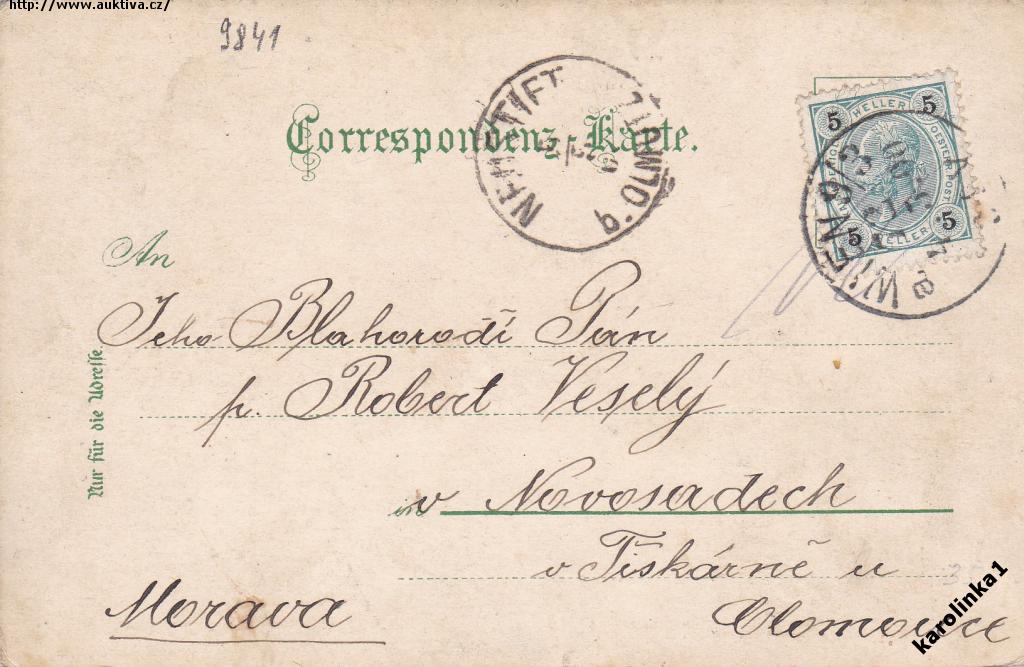 http://www.auktiva.cz/
9841
Correspondenz-Karte.
NEUSTIFT
b. OLMÜTZ
5 HELLER 5
OESTERR. POST
5 HELLER 5
WIEN 9/3
An
Jeho Blahorodí Pán
p. Robert Veselý
in v Novosadech
v Tiskárně u
Olomouce
Morava
Nur für die Adresse
karolinka1